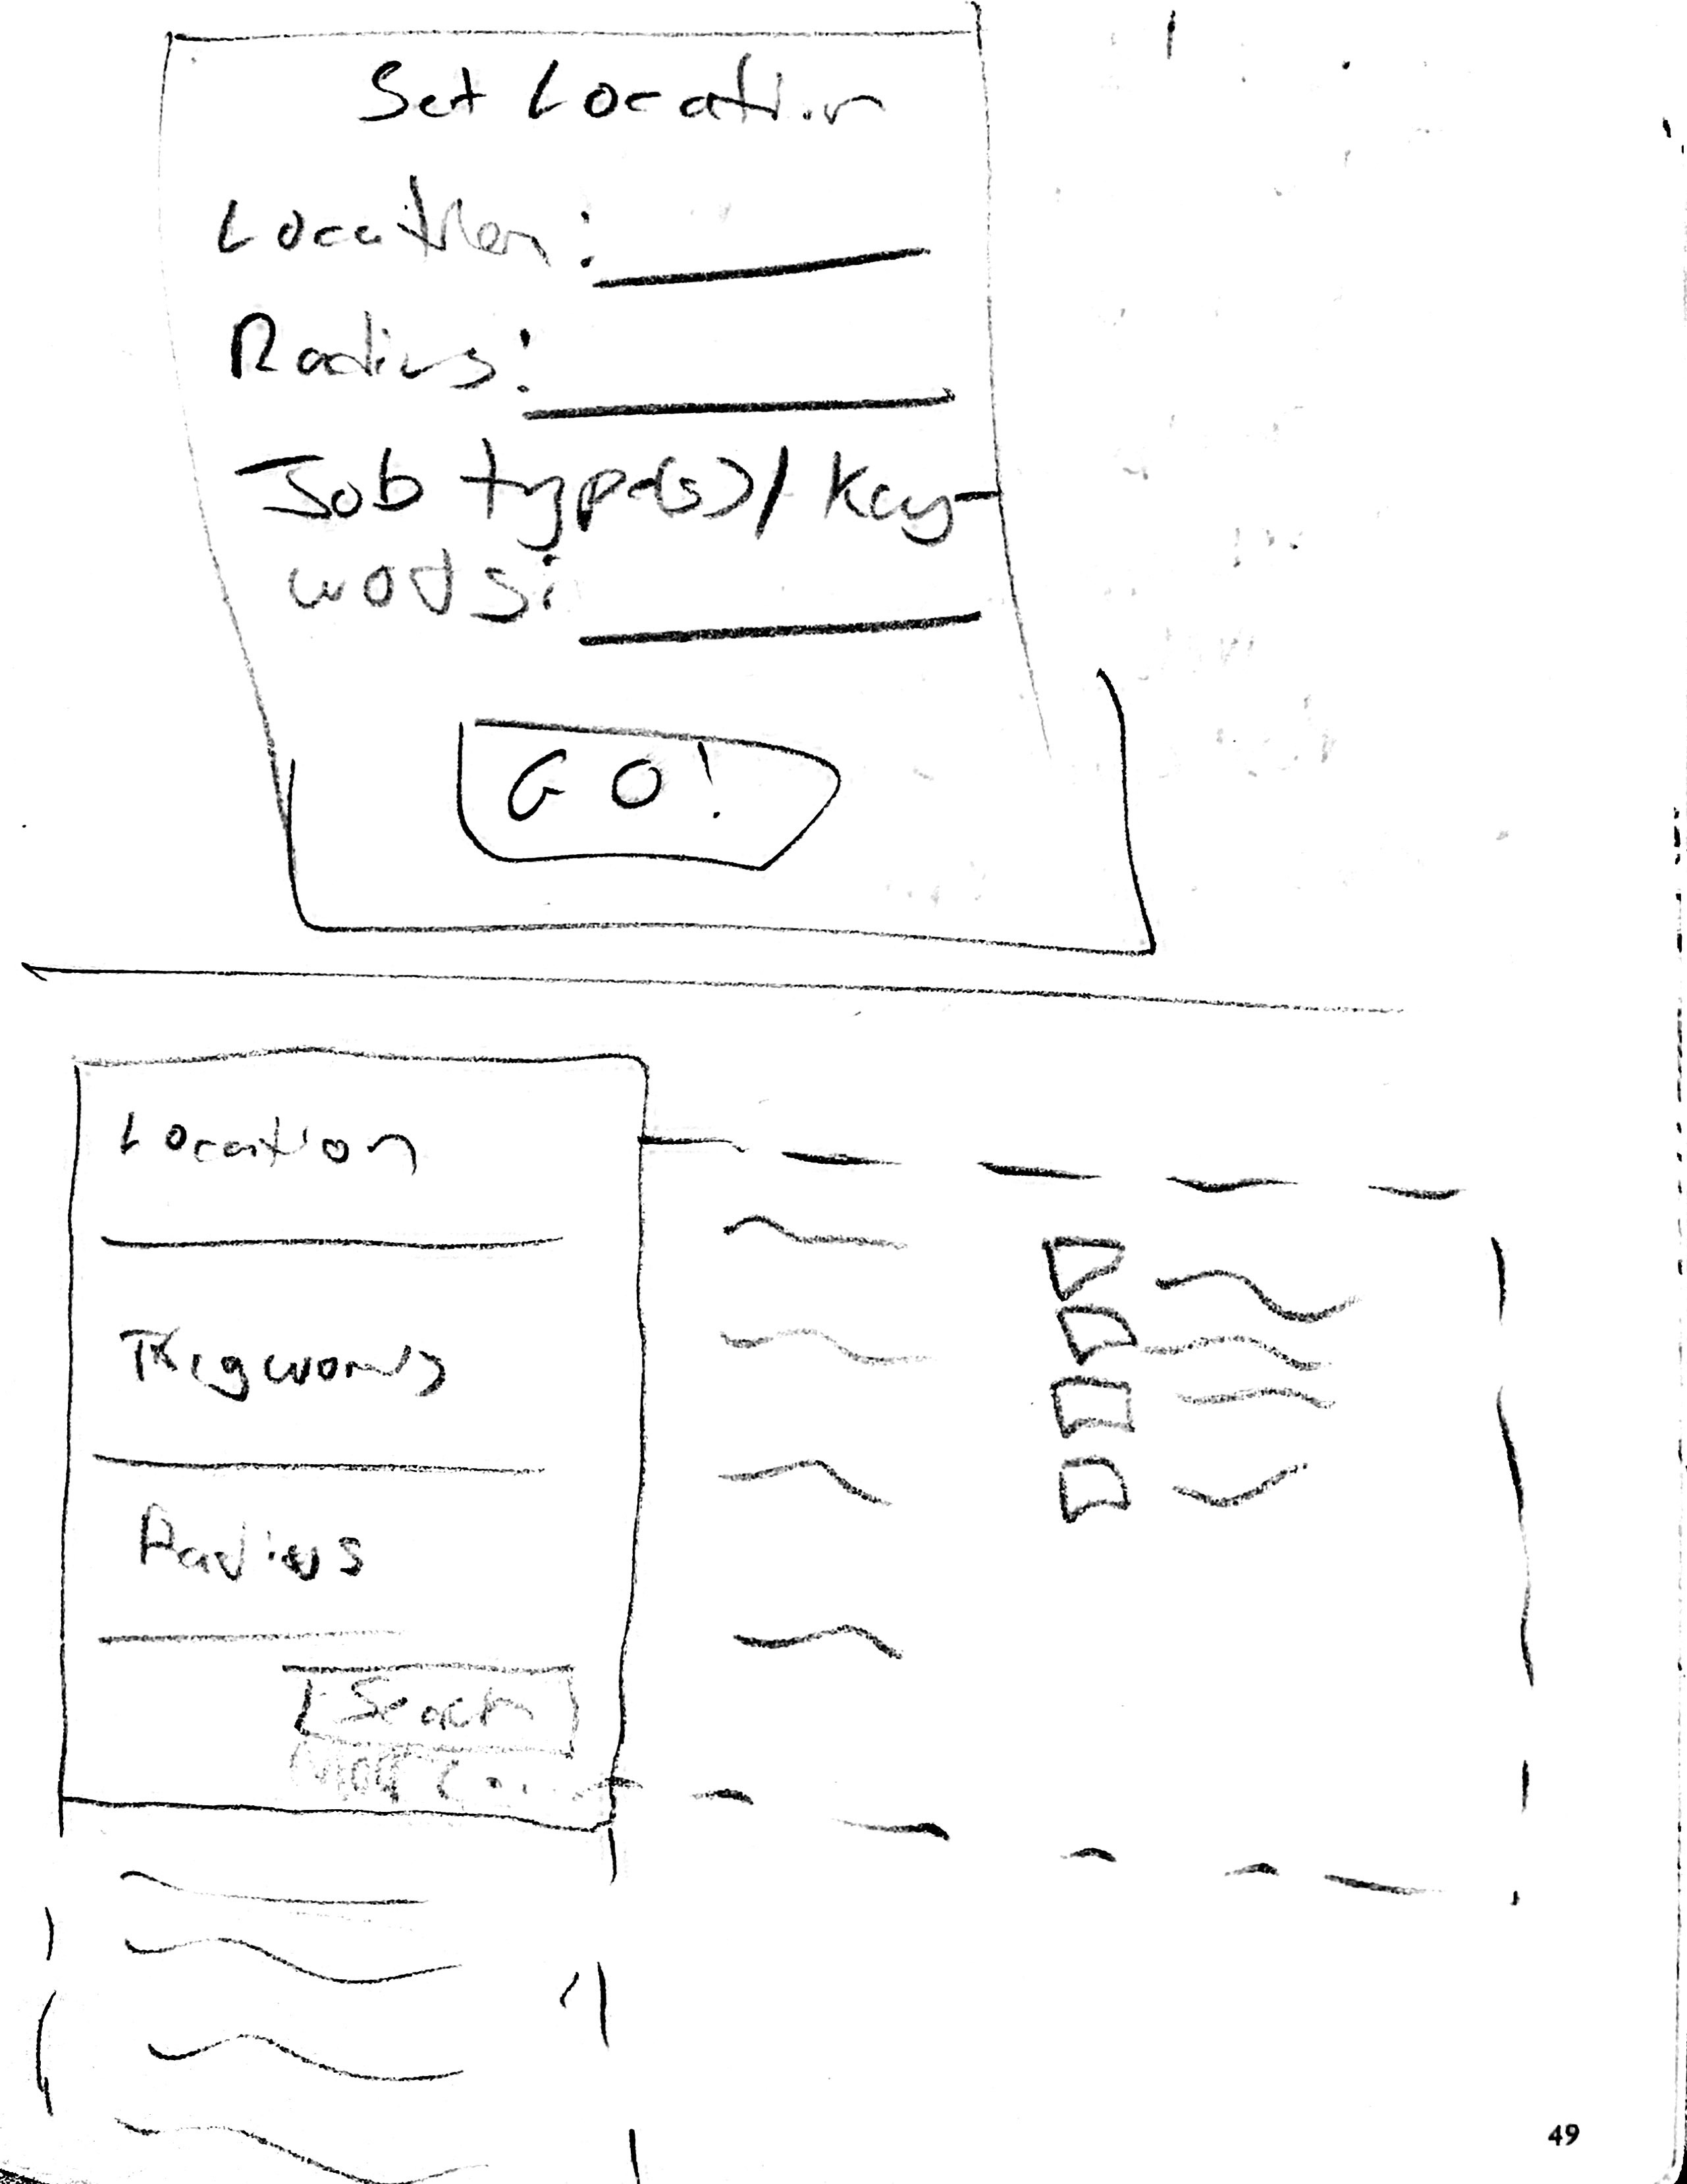 Set Location
Location:
Radius:
Job type(s)/Key-
words:
GO!
Location
Keywords
Radius
Search
More...
49